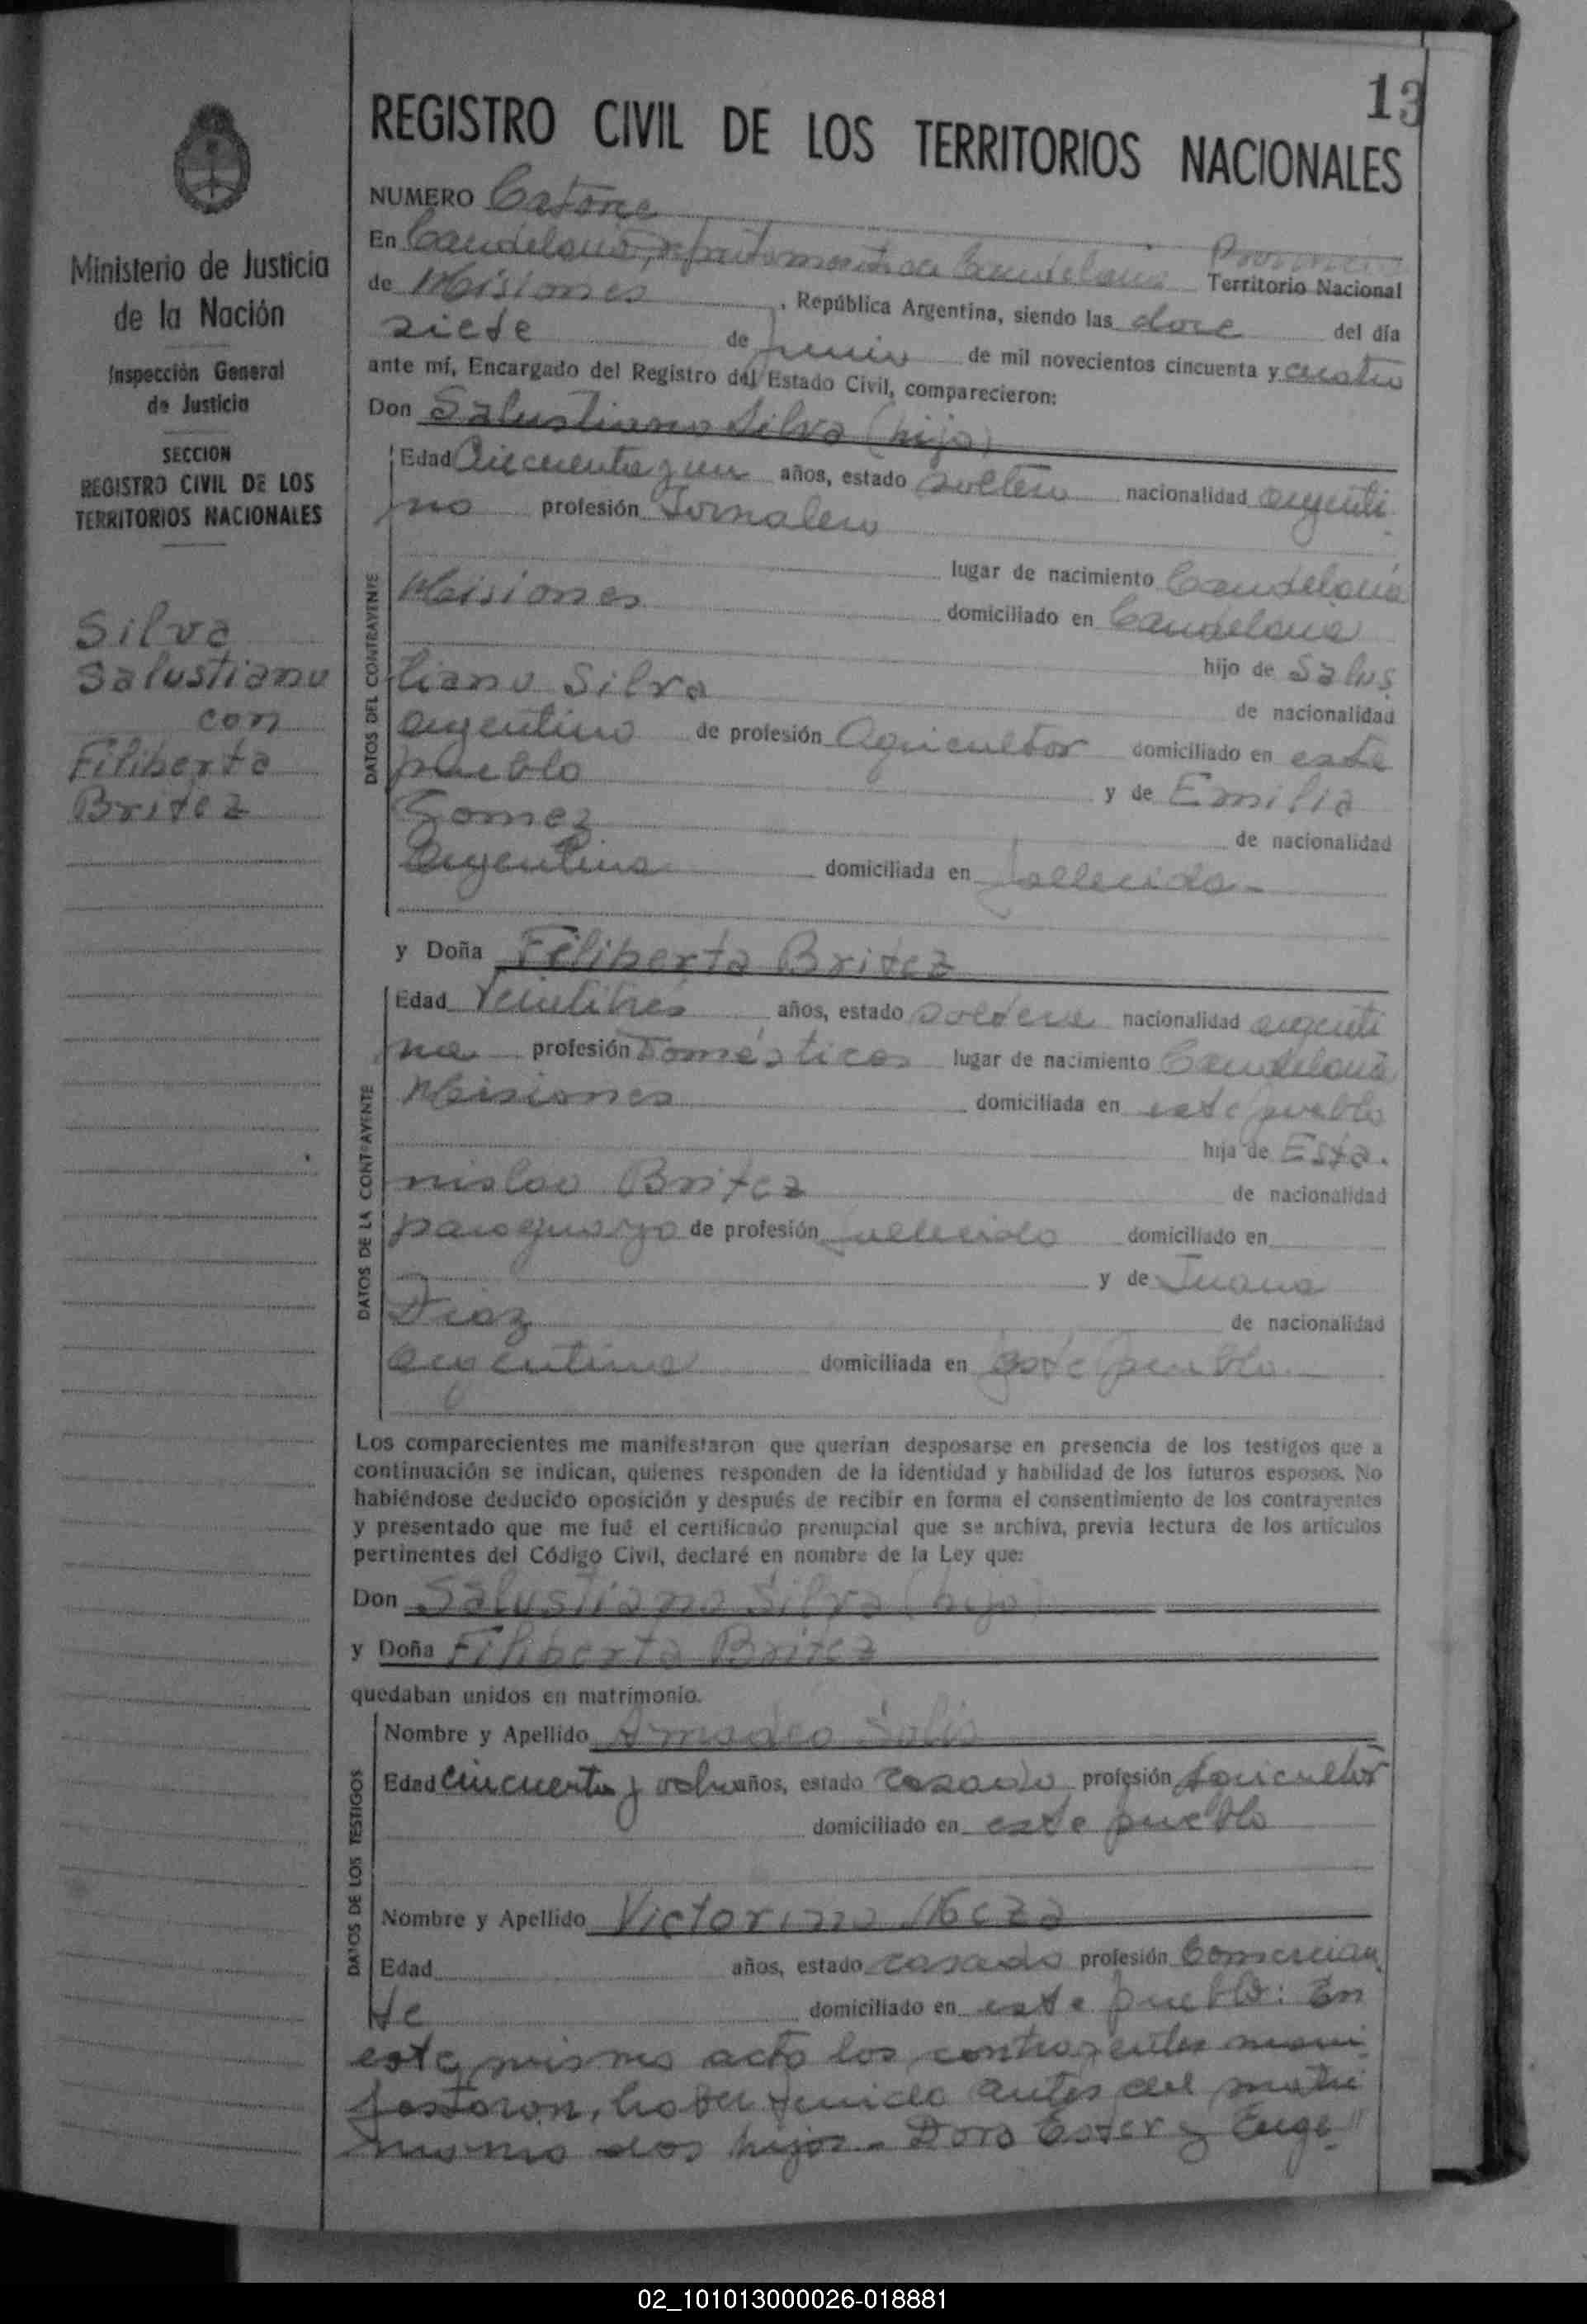 13
REGISTRO CIVIL DE LOS TERRITORIOS NACIONALES
Ministerio de Justicia
de la Nación
Inspección General
de Justicia
SECCION
REGISTRO CIVIL DE LOS
TERRITORIOS NACIONALES
Silva
Salustiano
con
Filiberta
Britez
NUMERO Catorce
En Candelaria, departamento de Candelaria Provincia Territorio Nacional
de Misiones, República Argentina, siendo las doce del día
siete de junio de mil novecientos cincuenta y cuatro
ante mí, Encargado del Registro del Estado Civil, comparecieron:
Don Salustiano Silva (hijo)
DATOS DEL CONTRAYENTE
Edad Cincuenta y un años, estado soltero nacionalidad argenti
no profesión Jornalero
lugar de nacimiento Candelaria
Misiones domiciliado en Candelaria
hijo de Salus
tiano Silva de nacionalidad
argentino de profesión Agricultor domiciliado en este
pueblo y de Emilia
Gomez de nacionalidad
Argentina domiciliada en fallecida-
y Doña Filiberta Britez
DATOS DE LA CONTRAYENTE
Edad Veintitrés años, estado soltera nacionalidad argenti
na profesión Domésticos lugar de nacimiento Candelaria
Misiones domiciliada en este pueblo
hija de Esta.
nislao Britez de nacionalidad
paraguayo de profesión fallecido domiciliado en
y de Juana
Diaz de nacionalidad
argentina domiciliada en este pueblo
Los comparecientes me manifestaron que querían desposarse en presencia de los testigos que a
continuación se indican, quienes responden de la identidad y habilidad de los futuros esposos. No
habiéndose deducido oposición y después de recibir en forma el consentimiento de los contrayentes
y presentado que me fué el certificado prenupcial que se archiva, previa lectura de los artículos
pertinentes del Código Civil, declaré en nombre de la Ley que:
Don Salustiano Silva (hijo)
y Doña Filiberta Britez
quedaban unidos en matrimonio.
DATOS DE LOS TESTIGOS
Nombre y Apellido Amadeo Solis
Edad Cincuenta y ocho años, estado casado profesión Agricultor
domiciliado en este pueblo
Nombre y Apellido Victorino Meza
Edad años, estado casado profesión Comercian
te domiciliado en este pueblo: En
este mismo acto los contrayentes mani
festaron, haber tenido antes del matri
monio dos hijos- Dora Ester y Euge
02_101013000026-018881